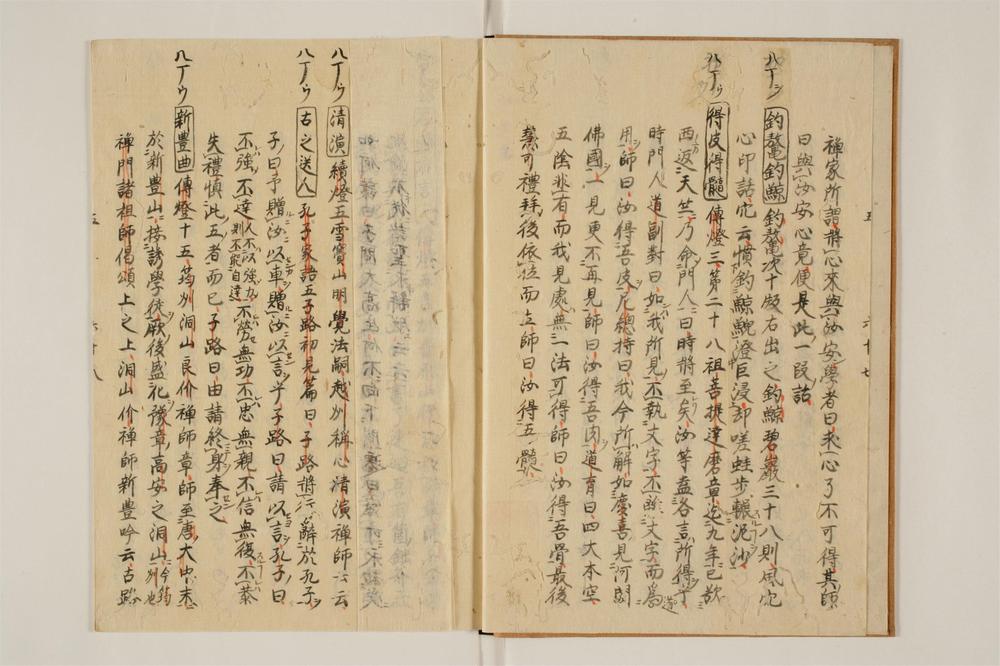 禅家所謂將心來與汝安學者曰求心了不可得其師
曰與汝安心竟便是此一段話
八丁ウ 釣鰲釣鯨 釣鰲次十版右出之釣鯨碧巖三十八則風穴
心印話穴云慣釣鯨鯢澄巨浸却嗟蛙步輾泥沙
八丁ウ 得皮得髓 傳燈三第二十八祖菩提達磨章迄九年已欲
西返天竺乃命門人曰時將至矣汝等盍各言所得乎
時門人道副對曰如我所見不執文字不離文字而為道
用師曰汝得吾皮尼總持曰我今所解如慶喜見阿閦
佛國一見更不再見師曰汝得吾肉道育曰四大本空
五陰非有而我見處無一法可得師曰汝得吾骨最後
慧可禮拜後依位而立師曰汝得吾髓
八丁ウ 清演 續燈五雪寶山明覺法嗣越州稱心清演禪師云云
八丁ウ 古之送人 孔子家語五子路初見篇曰子路將行辭於孔子
子曰予贈汝以車贈汝以言乎子路曰請以言孔子曰
不強不達人不以強力則不能自達不勞無功不忠無親不信無復不恭
失禮慎此五者而已子路曰由請終身奉之
八丁ウ 新豊曲 傳燈十五筠州洞山良价禪師章師至唐大中末
於新豊山接誘學徒厥後盛化豫章高安之洞山今筠州也
禅門諸祖師偈頌上之上洞山价禅師新豊吟云古路